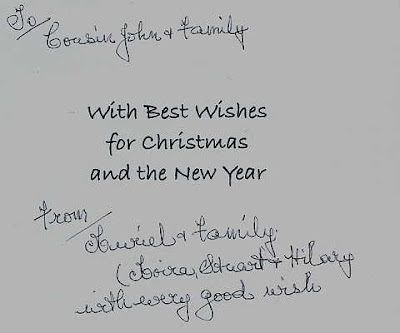 To
Cousin John & Family
With Best Wishes
for Christmas
and the New Year
From
Muriel & Family.
(Moira, Stuart & Hilary
with every good wish